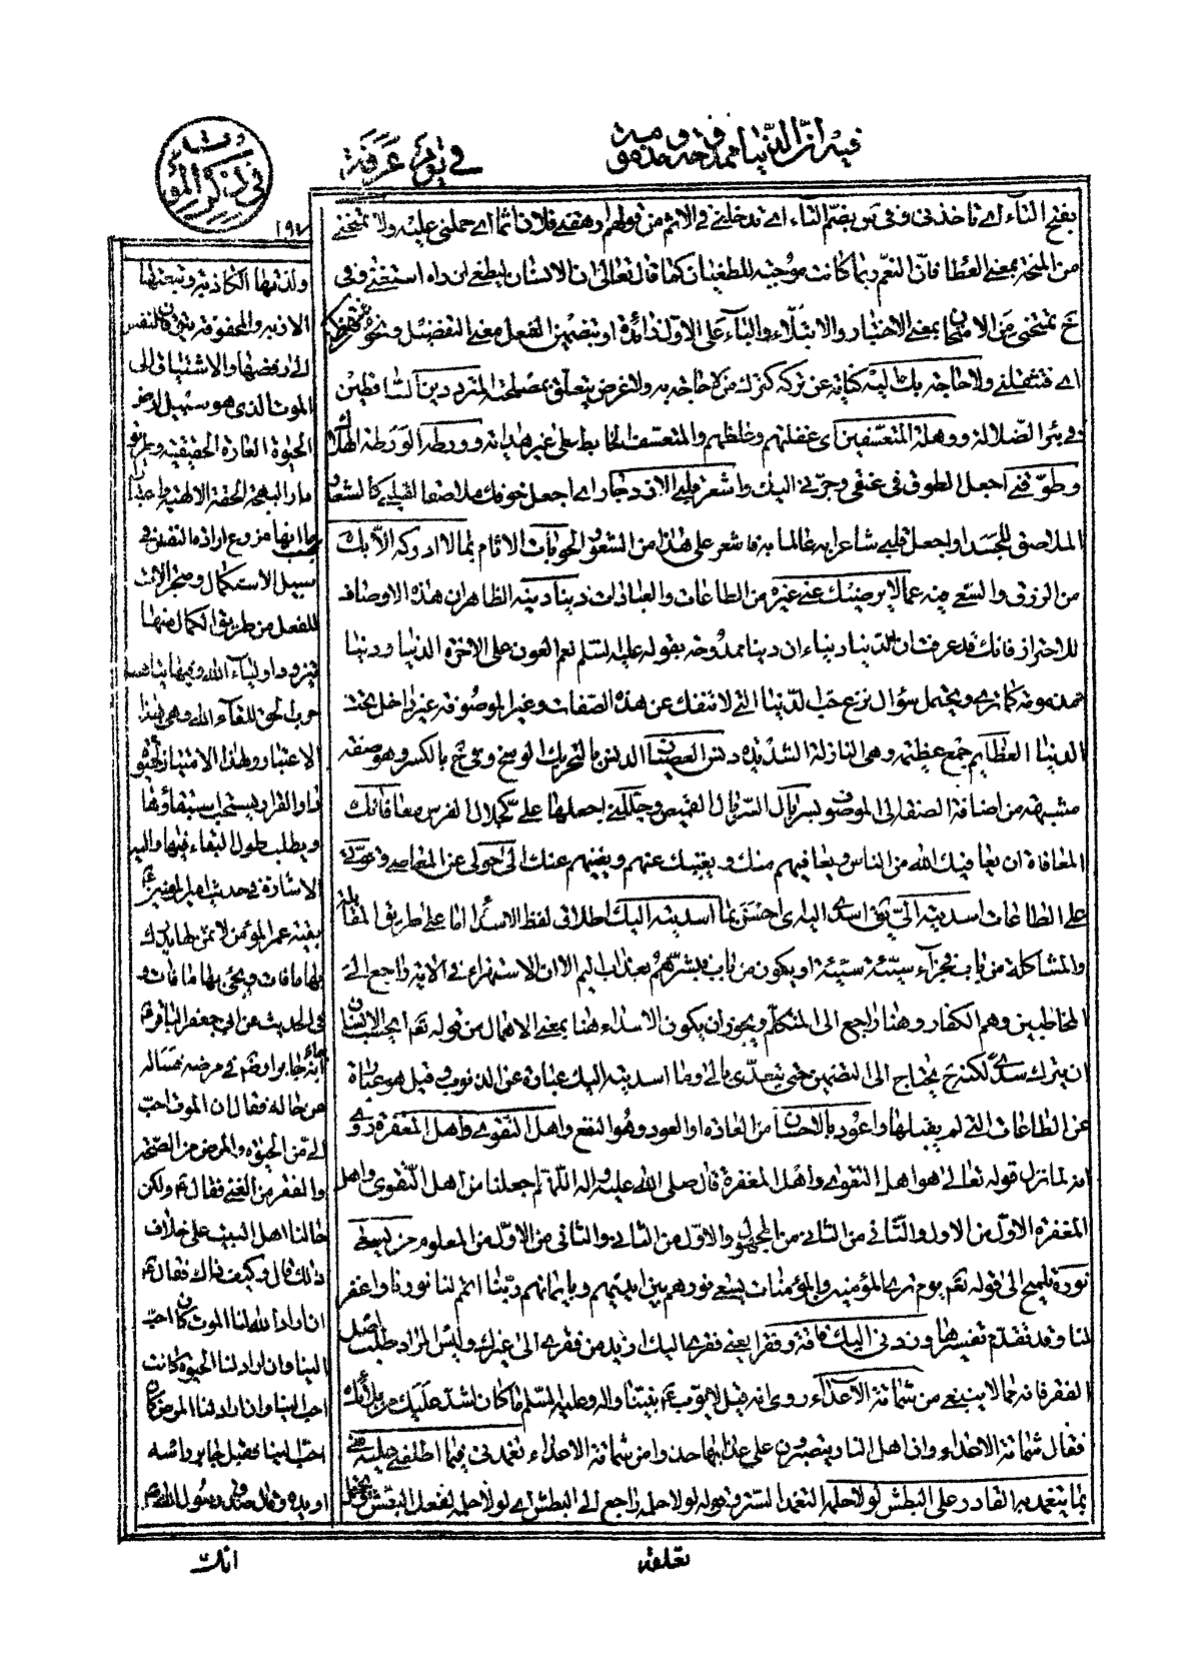 فيه ان الدنيا ممدوحة ومذمومة
في يوم عرفة
في ذكر الموت
١٩٧
بفتح التاء اي تاخذني وفي س بضم التاء اي تدخلني في الاثم من قولهم اوهقه فلان اثما اي حملني عليه ولا تمتحني
من المنحة بمعنى العطا فان النعم ربما كانت موجبة للطغيان كما قال تعالى ان الانسان ليطغى ان راه استغنى وفي
خ تمتحني من الامتحان بمعنى الاختبار والابتلاء والباء على الاول زائدة او بتضمين الفعل معنى التفضيل ونحوه
اي فتثقلني ولا حاجة بك اليه كناية عن تركه كترك من لا حاجة به ولا غرض يتعلق بمصلحة المترددين الساقطين
في بئر الضلالة ووهلة المتعسفين اي غفلتهم وغلطهم والمتعسف الخابط على غير هداية وورطة الورطة الهلاك
وطوقني اجعل الطوق في عنقي وجرني اليك واشعر قلبي الازدجار اي اجعل خوفك ملاصقا لقلبي كالشعار
الملاصق للجسد او اجعل قلبي شاعرا به عالما به فاشعر على هذا من الشعور الحوبات الاثام بما لا ادركه الا بك
من الرزق والسعي فيه عما لا يرضيك عني غيره من الطاعات والعبادات دنيا دنية الظاهر ان هذه الاوصاف
للاحتراز فانك قد عرفت ان الدنيا دنياء ان دنيا ممدوحة بقوله عليه السلم نعم العون على الاخرة الدنيا ودنيا
مذمومة كما ترى ويحتمل سؤال نزع حب الدنيا التي لا تنفك عن هذه الصفات وغير الموصوفة غير داخل تحت
الدنيا العظايم جمع عظيمة وهي النازلة الشديدة دنس العصيان الدنس بالتحريك الوسخ وفي خ بالكسر وهو صفة
مشبهة من اضافة الصفة الى الموصوف بسربال السربال القميص وجللني اجعلها علي كجلال الفرس معافاتك
المعافاة ان يعافيك الله من الناس ويعافيهم منك ويغنيك عنهم ويغنيهم عنك الى حولي عن المعاصي وقوتي
على الطاعات اسديته الي بان اسدى اليه اي احسن بما اسديته اليك اطلاق لفظ الاسداء اما على طريق المقابلة
والمشاكلة من باب جزاء سيئة سيئة او يكون من باب فبشرهم بعذاب اليم الا ان الاستهزاء في الاية راجع الى
المخاطبين وهم الكفار وهنا راجع الى المتكلم ويجوز ان يكون الاسداء هنا بمعنى الاهمال من قوله تعم ايحسب الانسان
ان يترك سدى لكنه يحتاج الى التضمين حتى يتعدى بالى وما اسديته اليك عبارة عن الذنوب وقيل هو عبارة
عن الطاعات التي لم يقبلها واعود بالاحسان من العادة او العود وهو النفع واهل التقوى واهل المغفرة روى
انه لما نزل قوله تعالى هو اهل التقوى واهل المغفرة قال صلى الله عليه واله اللهم اجعلنا من اهل التقوى واهل
المغفرة الاول من الاول والثاني من الثاني من المجهول والاول من الثاني والثاني من الاول من المعلوم حزب يسعى
نوره تلميح الى قوله تعم يوم ترى المؤمنين والمؤمنات يسعى نورهم بين ايديهم وبايمانهم ربنا اتمم لنا نورنا واغفر
لنا وقد تقدم تفسيرها وزدني اليك فاقة وفقرا يعني فقري اليك ازيد من فقري الى غيرك وليس المراد طلب اصل
الفقر فانه مما لا ينبغي من شماتة الاعداء روى انه قيل لايوب ع بنبينا واله وعليه السلم ما كان اشد عليك من بلائك
فقال شماتة الاعداء وان اهل النار يصبرون على عذابها حذرا من شماتة الاعداء تغمدني فيما اطلعت عليه مني
بما يتغمد به القادر على البطش لولا حلمه التغمد الستر وقوله لولا حلمه راجع الى البطش اي لولا حلمه لفعل البطش
تعلقه
ولذتها الكاذبة
الى رفضها والاشتياق الى
الموت الذي هو سبيل
الحيوة القارة الحقيقية
سبيل الاستكمال
للفعل من طريق الكمال منها
يتزود اولياء الله
حزب الحق للقاء الله وهي بهذا
الاعتبار ولهذا الامتياز
دار القرار يستحب استبقاؤها
ويطلب طول البقاء فيها واليه
الاشارة في حديث امير المؤمنين ع
بقية عمر المؤمن لا ثمن لها يدرك
بها ما فات ويحيى بها ما مات و
في الحديث عن ابي جعفر الباقر ع
انه جاء جابرا وهم في مرضه فساله
عن حاله فقال ان الموت احب
الي من الحيوة والمرض من الصحة
والفقر من الغنى فقال ع ولكن
حالنا اهل البيت على خلاف
ذلك قال وكيف ذاك فقال ع
ان اراد الله لنا الموت كان احب
الينا وان اراد لنا الحيوة كانت
احب الينا وان اراد لنا المرض كان
احب الينا فقبل جابر رأسه
او يده وقال صدق رسول الله ص
انك